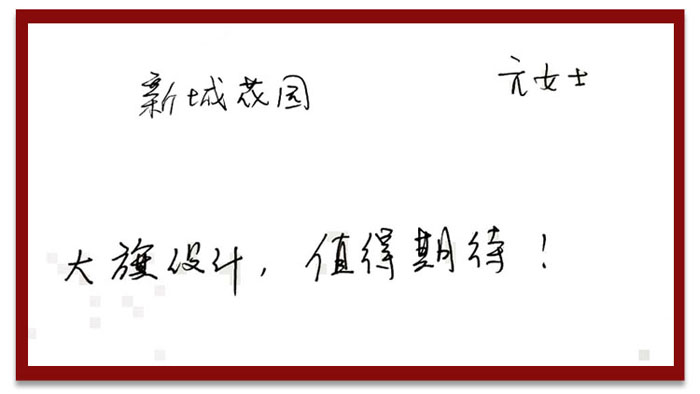 新城花园 亢女士
大旗设计，值得期待！